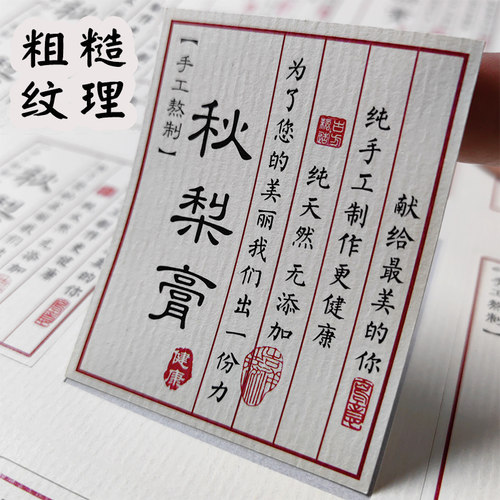 粗糙
纹理
献给最美的你
纯手工制作更健康
古方
纯天然 无添加
为了您的美丽我们出一份力
【手工熬制】
秋梨膏
健康